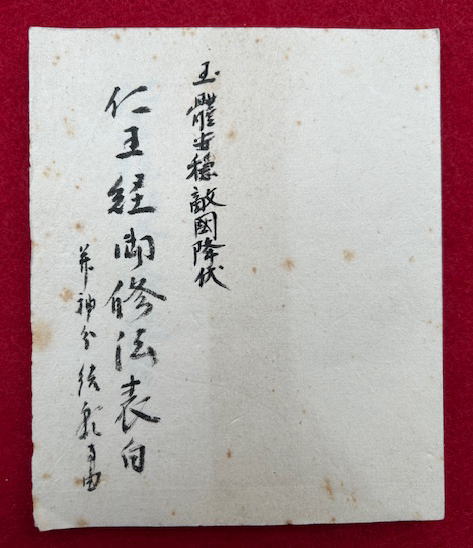 玉體安穩敵國降伏
仁王経御修法表白
并神分 結願事由